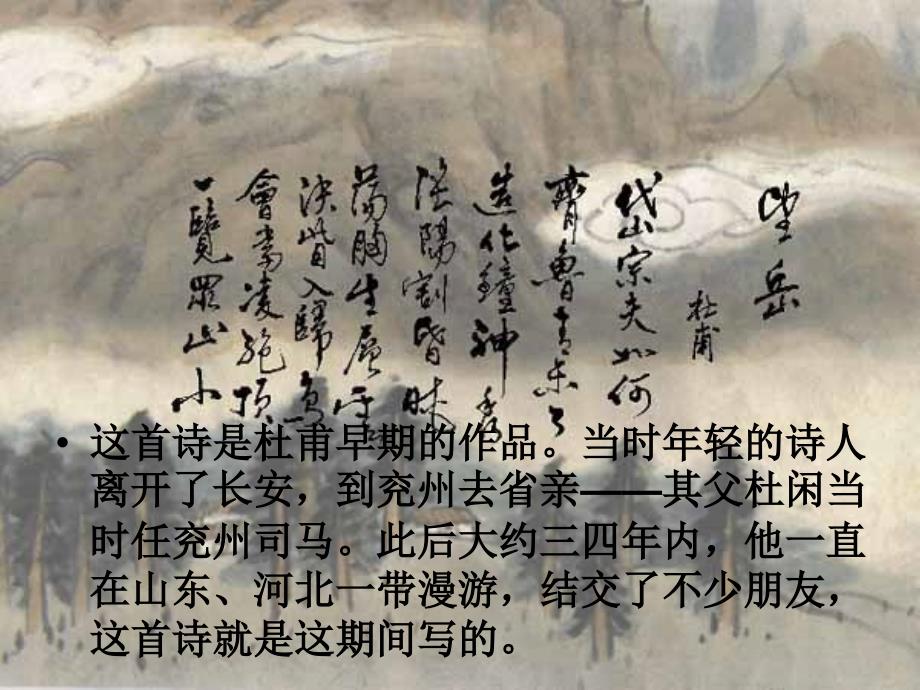 望岳
杜甫
岱宗夫如何
齊魯青未了
造化鐘神秀
陰陽割昏曉
蕩胸生層雲
決眥入歸鳥
會當凌絕頂
一覽眾山小
• 这首诗是杜甫早期的作品。当时年轻的诗人
离开了长安，到兖州去省亲——其父杜闲当
时任兖州司马。此后大约三四年内，他一直
在山东、河北一带漫游，结交了不少朋友，
这首诗就是这期间写的。